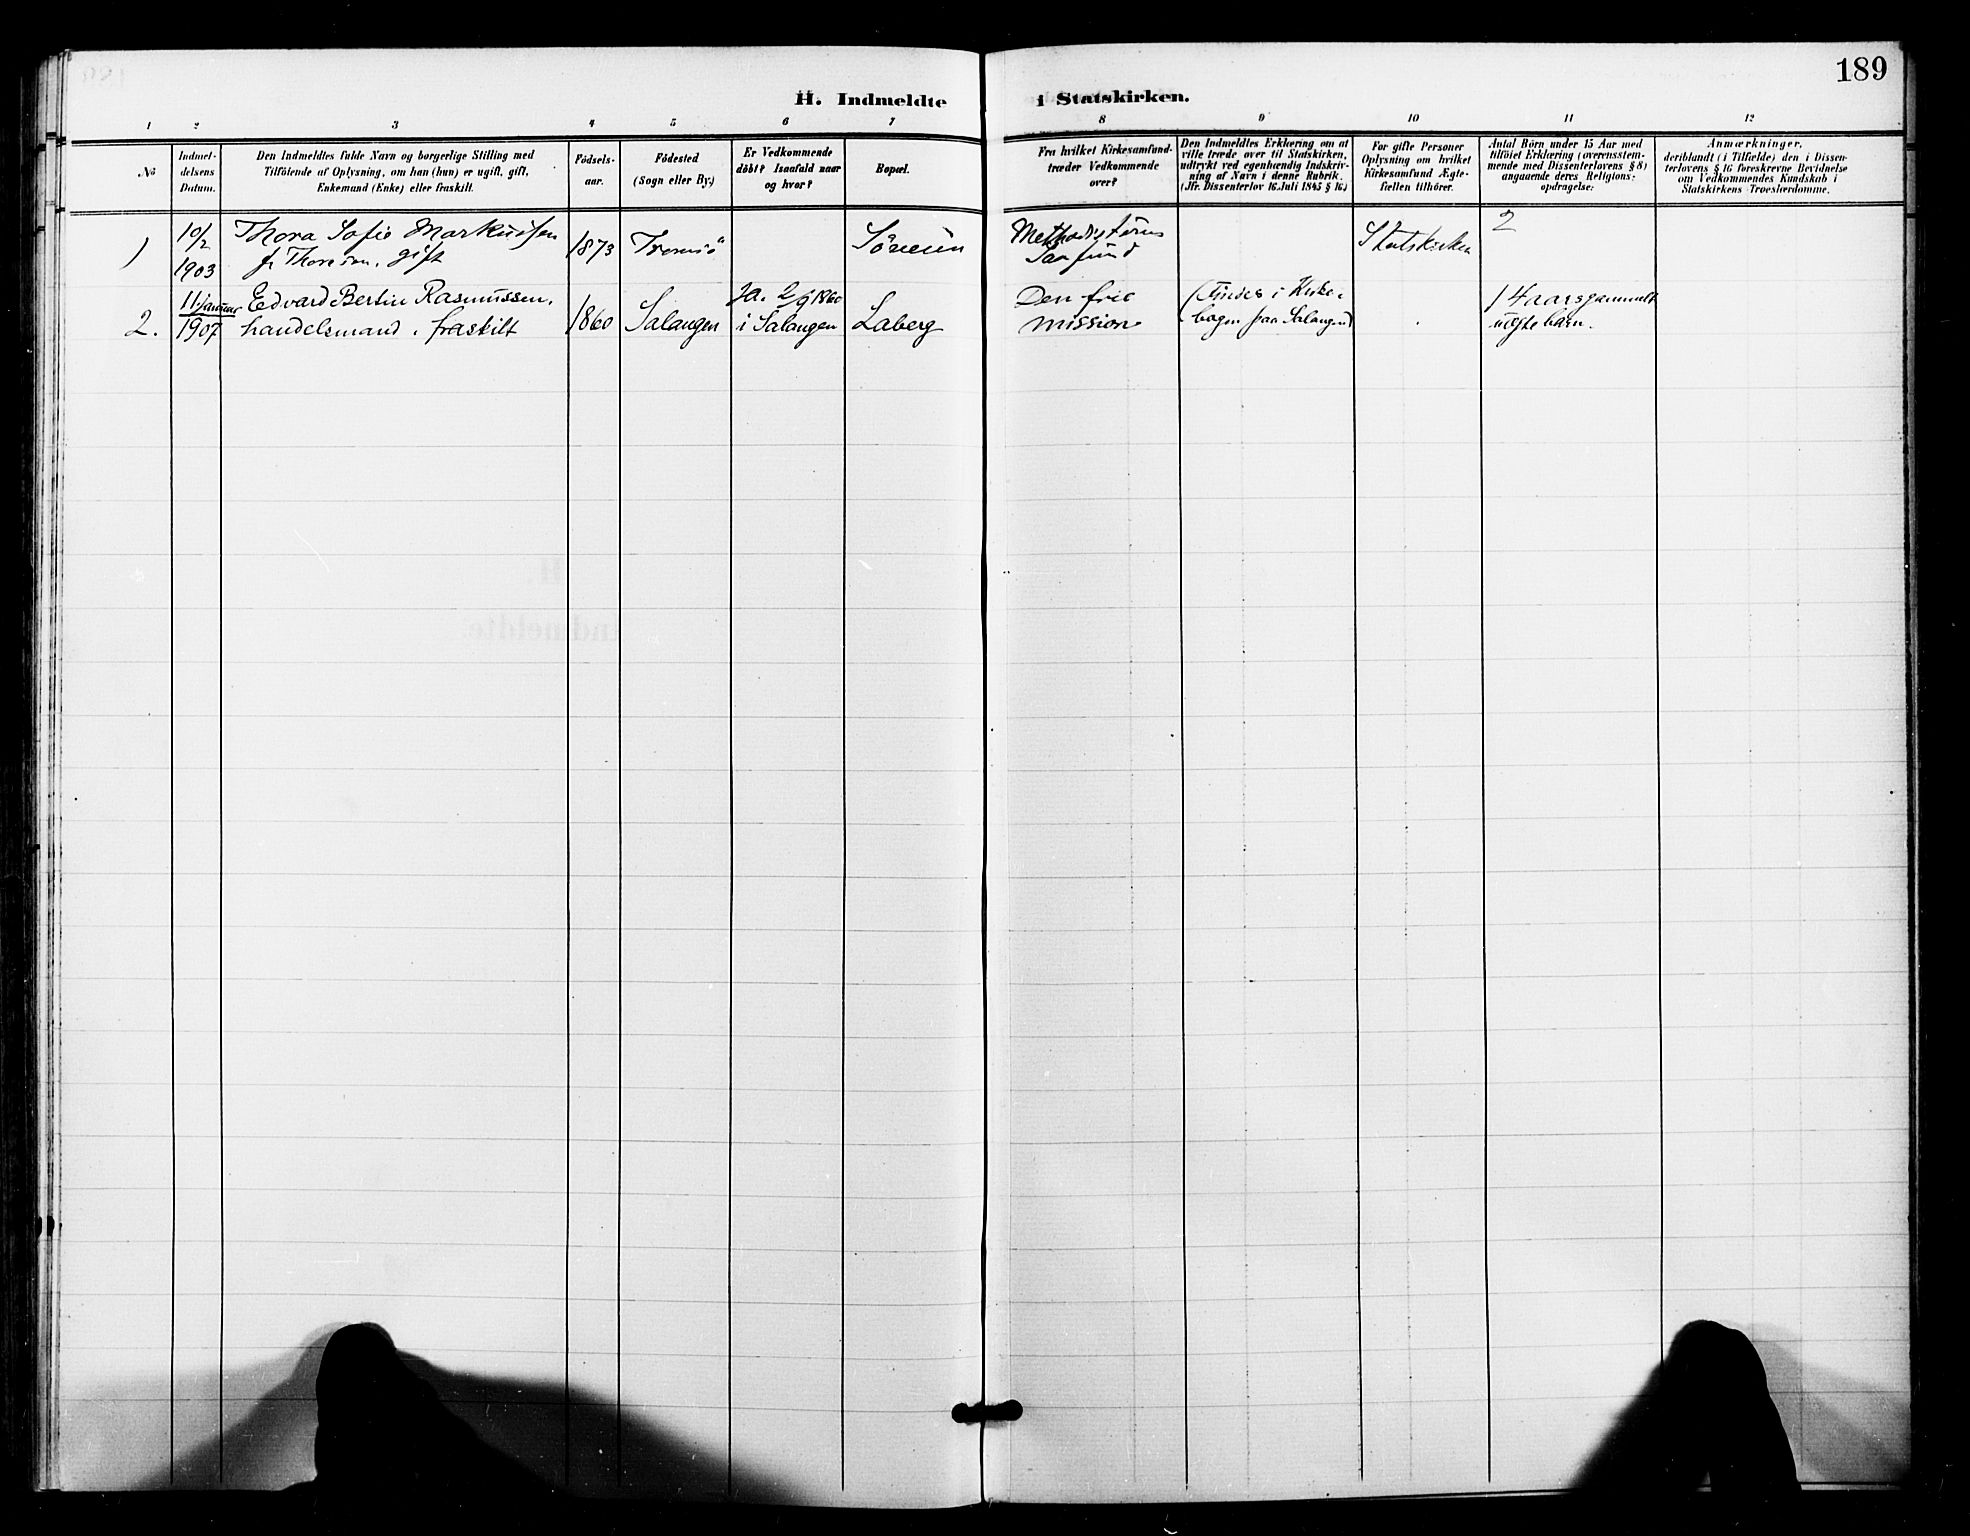 189
H. Indmeldte i Statskirken.
1 2 3 4 5 6 7 8 9 10 11 12
No
Indmel-
delsens
Datum.
Den Indmeldtes fulde Navn og borgerlige Stilling med
Tilföiende af Oplysning, om han (hun) er ugift, gift,
Enkemand (Enke) eller fraskilt.
Födsels-
aar.
Födested
(Sogn eller By.)
Er Vedkommende
döbt? Isaafald naar
og hvor?
Bopæl.
Fra hvilket Kirkesamfund
træder Vedkommende
over?
Den Indmeldtes Erklæring om at
ville træde over til Statskirken,
udtrykt ved egenhændig Indskriv-
ning af Navn i denne Rubrik.
(Jfr. Dissenterlov 16. Juli 1845 § 16.)
For gifte Personer
Oplysning om hvilket
Kirkesamfund Ægte-
fællen tilhörer.
Antal Börn under 15 Aar med
tilföiet Erklæring (overensstem-
mende med Dissenterlovens § 8)
angaaende deres Religions-
opdragelse:
Anmærkninger,
deriblandt (i Tilfælde) den i Dissen-
terlovens § 16 foreskrevne Bevidnelse
om Vedkommendes Kundskab i
Statskirkens Troeslærdomme.
1
10/2
1903
Thora Sofie Markussen
f. Thoresen, gift
1873
Tromsö
Methodisternes
Samfund
Statskirken
2
2.
11. januar
1907
Edvard Bertin Rasmussen,
handelsmand, fraskilt
1860
Salangen
Ja. 2/9 1860
i Salangen
Laberg
Den frie
mission
(Findes i Kirke-
bogen for Salangen)
1 4 aarsgammelt
uægte barn.